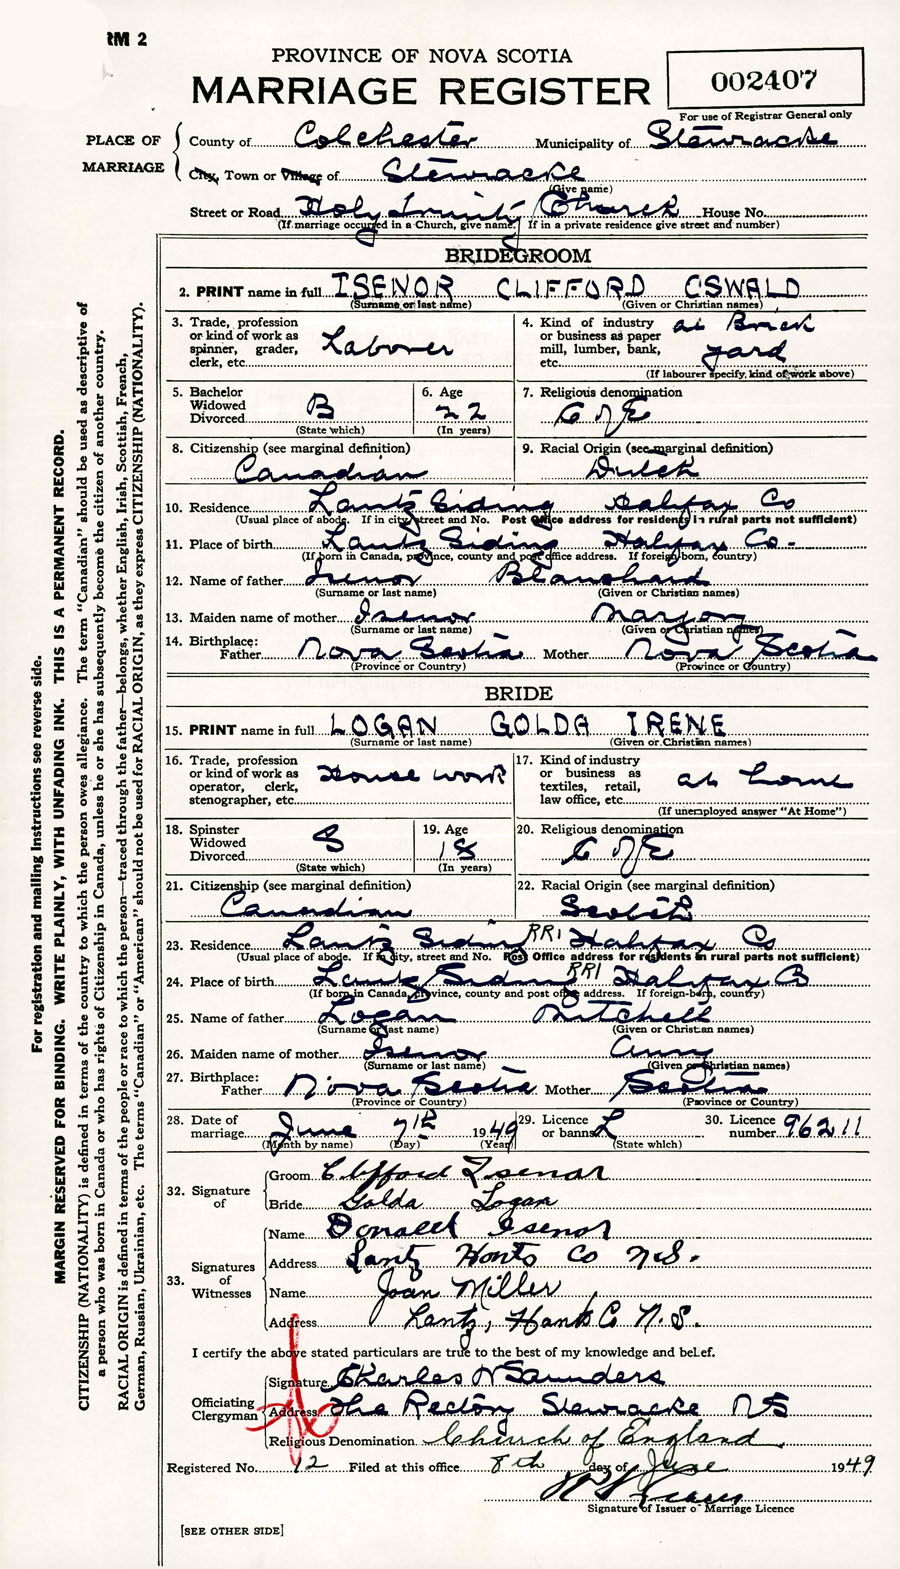 RM 2
PROVINCE OF NOVA SCOTIA
MARRIAGE REGISTER
002407
For use of Registrar General only
PLACE OF MARRIAGE
County of Colchester Municipality of Stewiacke
City, Town or Village of Stewiacke
(Give name)
Street or Road Holy Trinity Church House No.
(If marriage occurred in a Church, give name. If in a private residence give street and number)
BRIDEGROOM
2. PRINT name in full ISENOR CLIFFORD OSWALD
(Surname or last name) (Given or Christian names)
3. Trade, profession or kind of work as spinner, grader, clerk, etc. Labourer
4. Kind of industry or business as paper mill, lumber, bank, etc. at Brick yard
(If labourer specify, kind of work above)
5. Bachelor Widowed Divorced B
(State which)
6. Age 22
(In years)
7. Religious denomination C of E
8. Citizenship (see marginal definition) Canadian
9. Racial Origin (see marginal definition) Dutch
10. Residence Lantz Siding Halifax Co
(Usual place of abode. If in city, street and No. Post Office address for residents in rural parts not sufficient)
11. Place of birth Lantz Siding Halifax Co.
(If born in Canada, province, county and post office address. If foreign-born, country)
12. Name of father Isenor Blanchard
(Surname or last name) (Given or Christian names)
13. Maiden name of mother Isenor
(Surname or last name) (Given or Christian names)
14. Birthplace: Father Nova Scotia Mother Nova Scotia
(Province or Country) (Province or Country)
BRIDE
15. PRINT name in full LOGAN GOLDA IRENE
(Surname or last name) (Given or Christian names)
16. Trade, profession or kind of work as operator, clerk, stenographer, etc. House work
17. Kind of industry or business as textiles, retail, law office, etc. at home
(If unemployed answer "At Home")
18. Spinster Widowed Divorced S
(State which)
19. Age 18
(In years)
20. Religious denomination C of E
21. Citizenship (see marginal definition) Canadian
22. Racial Origin (see marginal definition) Scotch
23. Residence Lantz Siding RR1 Halifax Co
(Usual place of abode. If in city, street and No. Post Office address for residents in rural parts not sufficient)
24. Place of birth Lantz Siding RR1 Halifax Co
(If born in Canada, province, county and post office address. If foreign-born, country)
25. Name of father Logan Mitchell
(Surname or last name) (Given or Christian names)
26. Maiden name of mother Isenor Anny
(Surname or last name) (Given or Christian names)
27. Birthplace: Father Nova Scotia Mother Scotia
(Province or Country) (Province or Country)
28. Date of marriage June 7th 1949
(Month by name) (Day) (Year)
29. Licence or banns L
(State which)
30. Licence number 96211
32. Signature of
Groom Clifford Isenor
Bride Golda Logan
33. Signatures of Witnesses
Name Donald Isenor
Address Lantz Hants Co N.S.
Name Joan Miller
Address Lantz, Hants Co N.S.
I certify the above stated particulars are true to the best of my knowledge and belief.
Officiating Clergyman
Signature Charles N Saunders
Address The Rectory Stewiacke NS
Religious Denomination Church of England
Registered No. 12 Filed at this office 8th day of June 1949
Signature of Issuer of Marriage Licence
[SEE OTHER SIDE]
For registration and mailing instructions see reverse side.
MARGIN RESERVED FOR BINDING. WRITE PLAINLY, WITH UNFADING INK. THIS IS A PERMANENT RECORD.
CITIZENSHIP (NATIONALITY) is defined in terms of the country to which the person owes allegiance. The term "Canadian" should be used as descriptive of
a person who was born in Canada or who has rights of Citizenship in Canada, unless he or she has subsequently become the citizen of another country.
RACIAL ORIGIN is defined in terms of the people or race to which the person—traced through the father—belongs, whether English, Irish, Scottish, French,
German, Russian, Ukrainian, etc. The terms "Canadian" or "American" should not be used for RACIAL ORIGIN, as they express CITIZENSHIP (NATIONALITY).